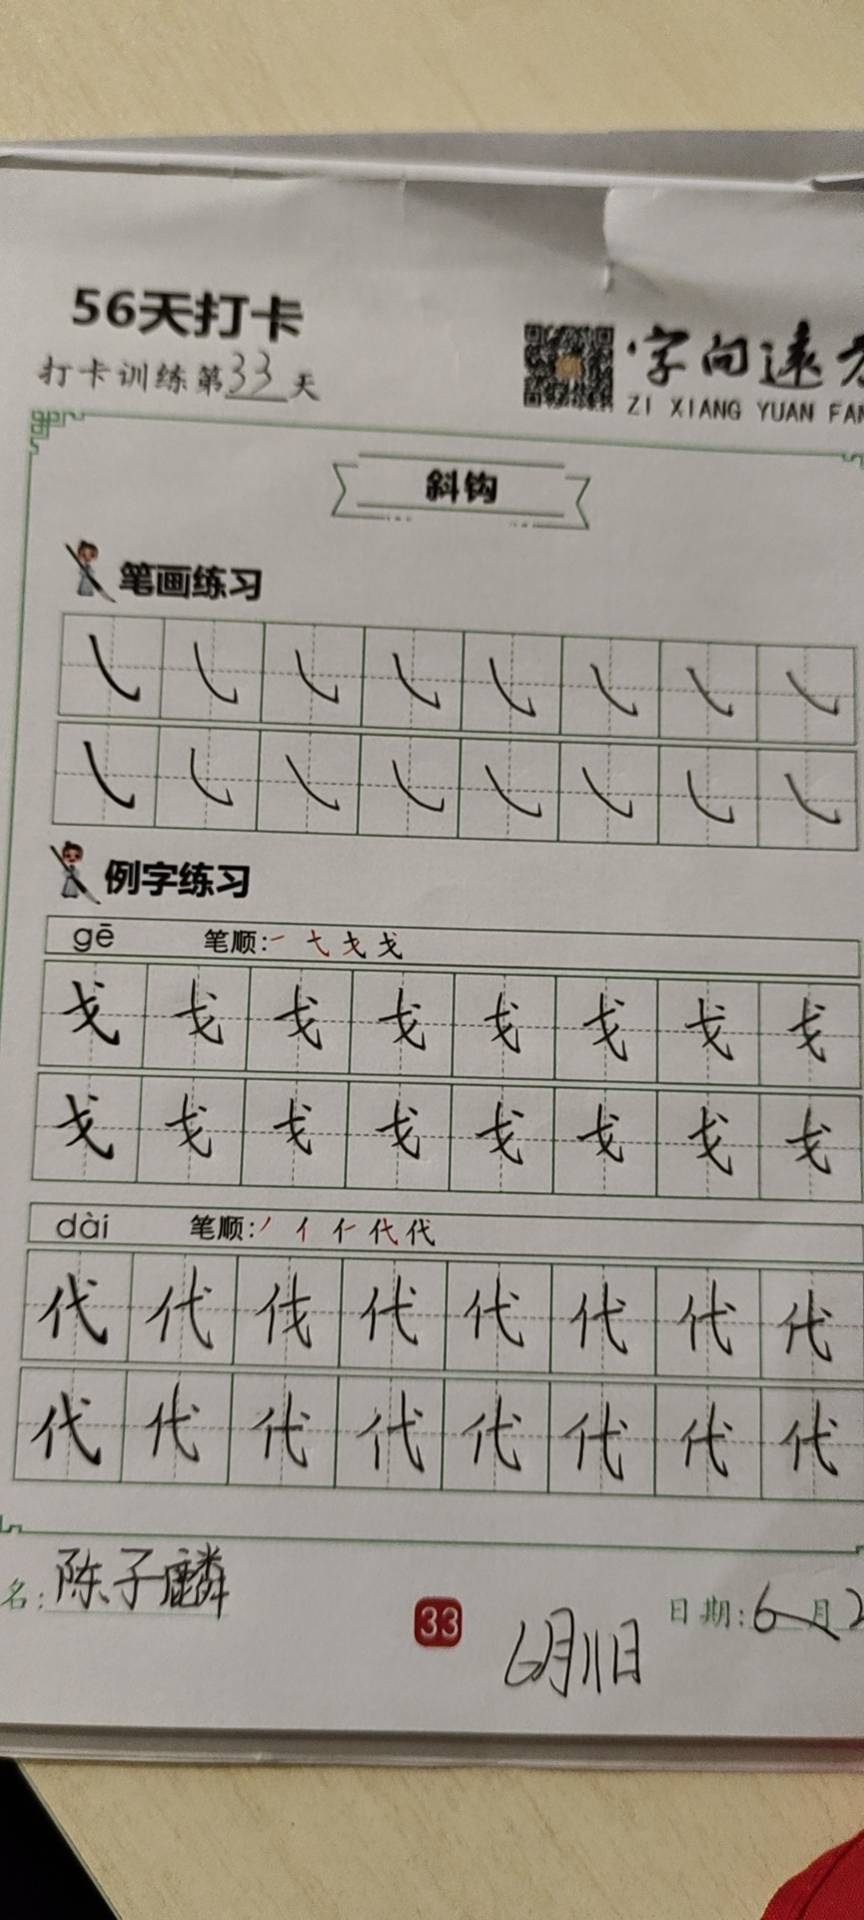 56天打卡
打卡训练第33天
字向远方
ZI XIANG YUAN FAN
斜钩
笔画练习
例字练习
gē 笔顺:
戈 戈 戈 戈 戈 戈 戈 戈
戈 戈 戈 戈 戈 戈 戈 戈
dài 笔顺: 代
代 代 代 代 代 代 代 代
代 代 代 代 代 代 代 代
名: 陈子麟
33
日期: 6月2
6月11日